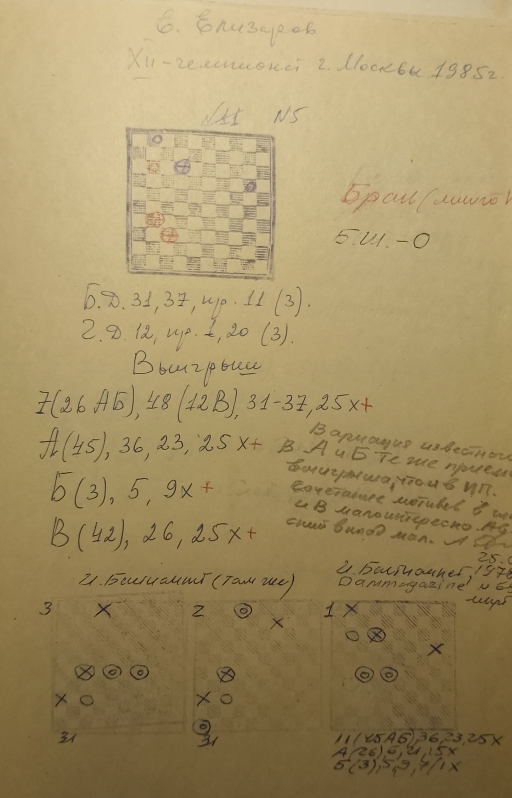 Е. Елизаров
XII-чемпионат г. Москвы 1985г.
N11 N5
Брак (много
Б.Ш. - 0
Б.Д. 31, 37, пр. 11 (3).
Ч.Д. 12, пр. 1, 20 (3).
Выигрыш
7(26АБ), 48(12В), 31-37, 25x+
А(45), 36, 23, 25x+
Б(3), 5, 9x+
В(42), 26, 25x+
Вариация известного
В А и Б те же
выигрыша, что и в ИП.
Сочетание мотивов в
и В малоинтересно.
25.
И. Бастианнет (там же)
И. Бастианнет, 1978
Dammagazine N
3
2
1
31
31
11(45АБ), 36, 23, 25x
А(26)6, 21, 15x
Б(3), 5, 9, 7/1x